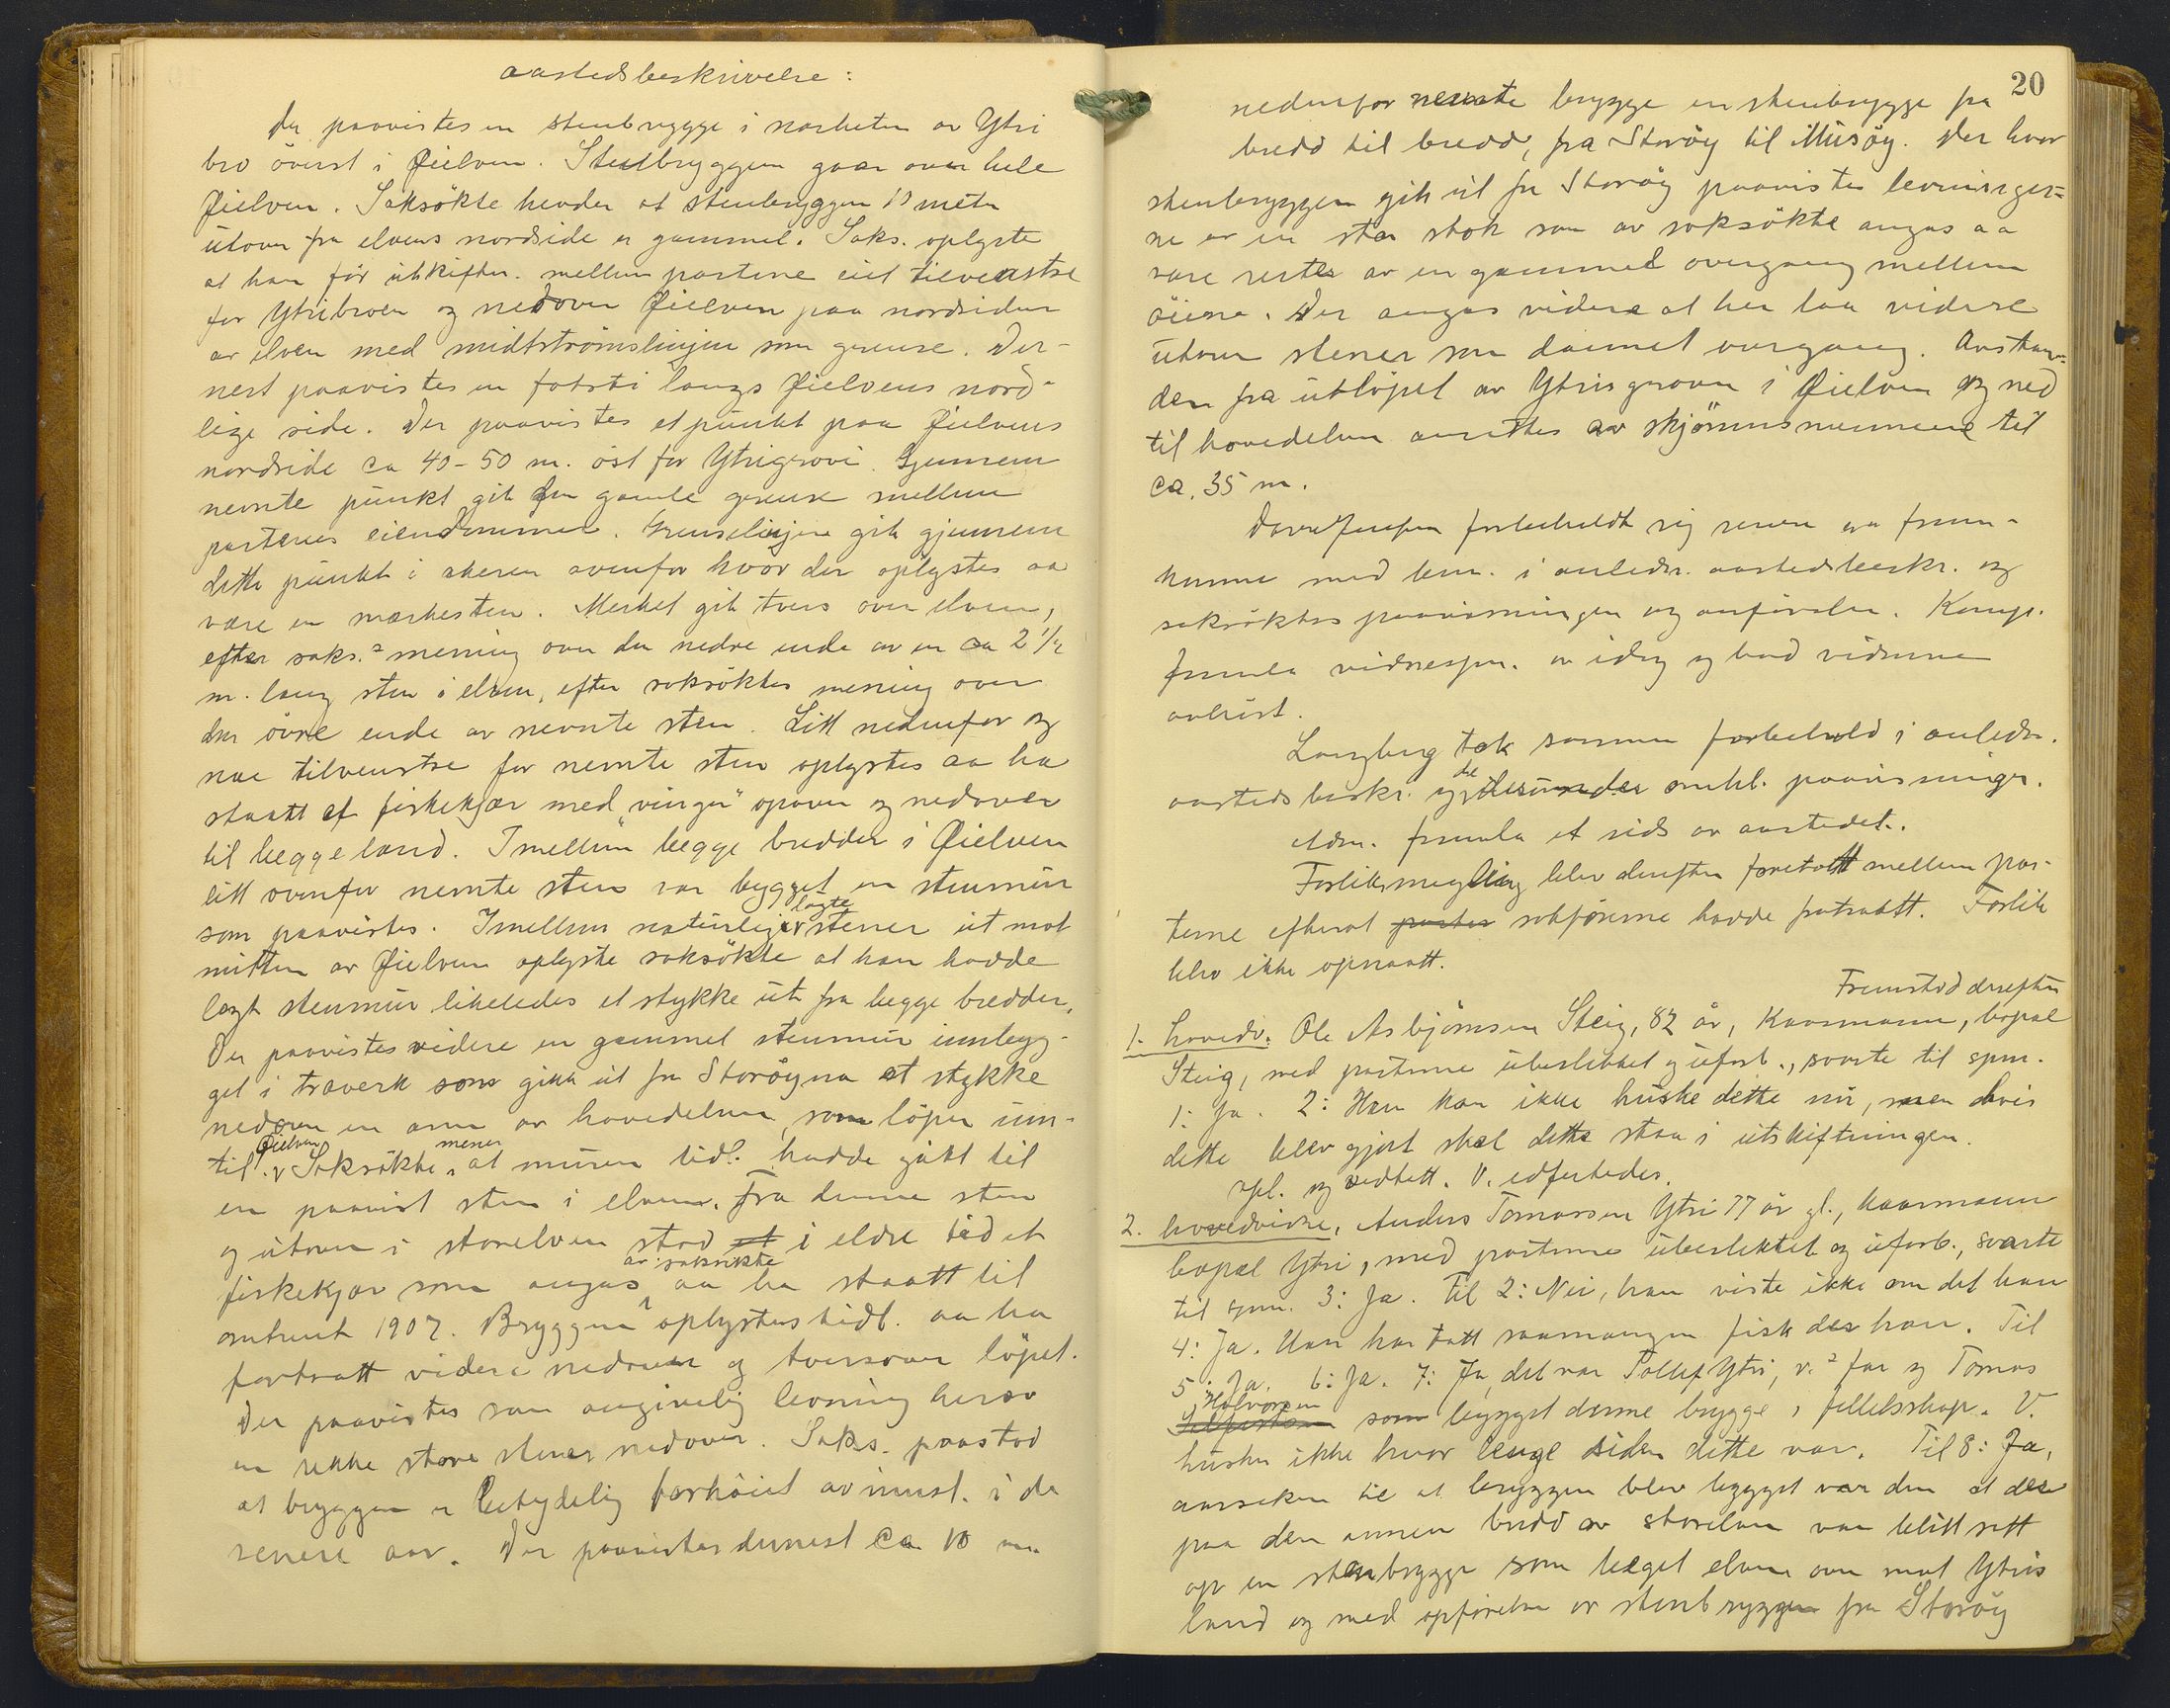 aastedsbeskrivelse:
Der paavistes en stenbrygge i nærheten av Ytri
bro överst i Øielven. Stenbryggen gaar over hele
Øielven. Saksökte hevder at stenbryggen 10 meter
utover fra elvens nordside er gammel. Saks. oplyste
at han för utskiftn. mellem partene eiet tilvenstre
for Ytribroen og nedover Øielven paa nordsiden
av elven med midtströmslinjen som grense. Der-
nest paavistes en fotsti langs Øielvens nord-
lige side. Der paavistes et punkt paa Øielvens
nordside ca 40-50 m. öst for Ytrigrovi. Gjennem
nevnte punkt gik den gamle grense mellem
partenes eiendommer. Grenselinjen gik gjennem
dette punkt i akeren ovenfor hvor der oplystes aa
være en merkesten. Merket gik tvers over elven,
efter saks.s mening over den nedre ende av en ca 2 1/2
m. lang sten i elven, efter saksöktes mening over
den övre ende av nevnte sten. Litt nedenfor og
noe tilvenstre for nevnte sten oplystes aa ha
staatt et fiskekjær med "vinger" opover og nedover
til begge land. Imellem begge bredder i Øielven
litt ovenfor nevnte sten var bygget en stenmur
som paavistes. Imellem naturlig lagte stener ut mot
mitten av Øielven oplyste saksökte at han hadde
lagt stenmur likeledes et stykke ut fra begge bredder.
Der paavistes videre en gammel stenmur innbyg-
get i traverk som gikk ut fra Storöyna et stykke
nedover en arm av hovedelven, som löper inn-
til Øielven. Saksökte mener at muren tidl. hadde gått til
en paavist sten i elven. Fra denne sten
og utover i storelven stod et i eldre tid et
fiskekjær som angas av saksökte aa ha staatt til
omtrent 1907. Bryggen oplystes tidl. aa ha
fortsatt videre nedover og tversover löpet.
Der paavistes som angivelig levning herav
en rekke store stener nedover. Saks. paastod
at bryggen er betydelig forhöiet av innst. i de
senere aar. Der paavistes dernest ca 10 m
20
nedenfor nevnte brygge en stenbrygge fra
bredd til bredd, fra Storöy til Musöy. Der hvor
stenbryggen gik ut fra Storöy paavistes levninger-
ne av en stor stok som av saksökte angas aa
være rester av en gammel overgang mellem
öiene. Der angas videre at her laa videre
utover stener som dannet overgang. Avstan-
den fra utlöpet av Ytrisgroven i Øielven og ned
til hovedelven ansettes av skjönnsmennene til
ca. 35 m.
forbeholdt sig senere aa frem-
komme med bem. i anledn. aastedsbeskr. og
saksöktes paavisninger og anförsler. Komp.
fremla vidnespm. av idag og bad vidnene
avhört.
Langberg tok samme forbehold i anledn.
aastedsbeskr. og de derunder omhl. paavisninger.
Adm. fremla et rids av aastedet.
Forliksmegling blev derefter foretatt mellem par-
tene efterat parter sakförerne hadde fratraatt. Forlik
blev ikke opnaatt.
Fremstod derefter
1. hovedv. Ole Asbjörnsen Steig, 82 år, Kaarmann, bopæl
Steig, med partene ubeslektet og uforb., svarte til spm.
1: Ja. 2: Han kan ikke huske dette nu, men hvis
dette blev gjort skal dette staa i utskiftningen.
Opl. og vedtatt. V. edfestedes.
2. hovedvidne, Anders Tomassen Ytri 77 år gl., kaarmann
bopæl Ytri, med partene ubeslektet og uforb., svarte
til spm. 3: Ja. Til 2: Nei, han viste ikke om det han
4: Ja. Han har tatt saamangen fisk der han. Til
5: Ja. 6: Ja. 7: Ja, det var Tollef Ytri, v.s far og Tomas
Halvorsen som bygget denne brygge i fellesskap. V.
husker ikke hvor lenge siden dette var. Til 8: Ja,
aarsaken til at bryggen blev bygget var den at der
paa den annen bredd av storelven var blitt satt
op en stenbrygge som leget elven over mot Ytris
land og med opförelse av stenbryggen fra Storöy